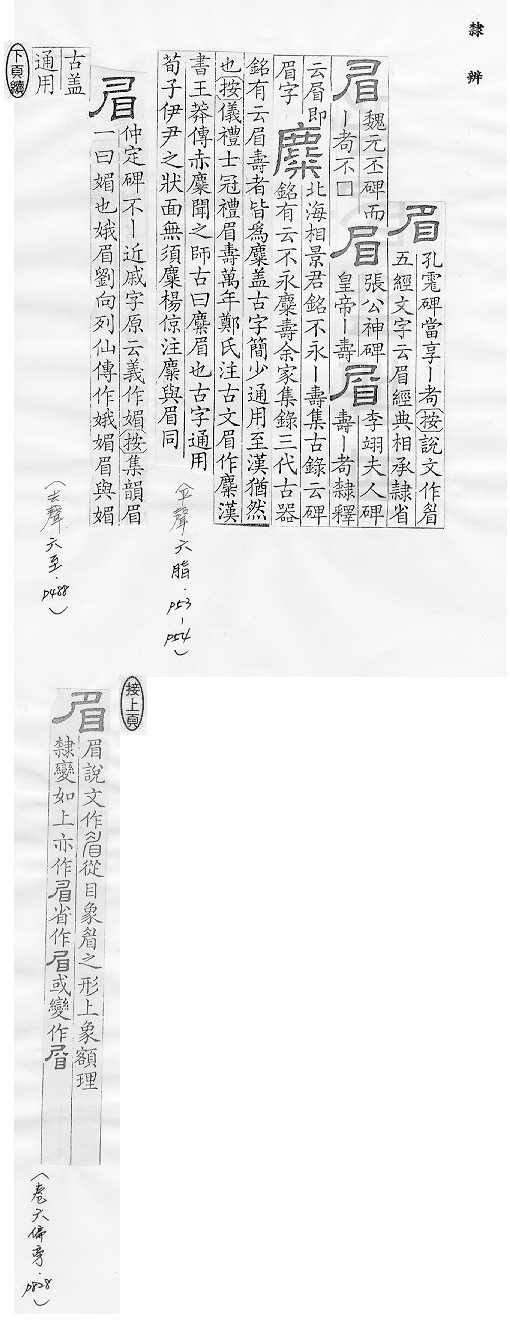 隸辨
眉孔宙碑當享ー耇按說文作𥇡
五經文字云眉經典相承隸省
眉魏元丕碑而眉張公神碑眉李翊夫人碑
ー耇不□皇帝ー壽壽ー耇隸釋
云眉即北海相景君銘不永ー壽集古錄云碑
眉字麋銘有云不永麋壽余家集錄三代古器
銘有云眉壽者皆為麋盖古字簡少通用至漢猶然
也按儀禮士冠禮眉壽萬年鄭氏注古文眉作麋漢
書王莽傳赤麋聞之師古曰麋眉也古字通用
荀子伊尹之狀面無須麋楊倞注麋與眉同
(平聲六脂.p53-p54)
眉仲定碑不ー近戚字原云義作媚按集韻眉
一曰媚也娥眉劉向列仙傳作娥媚眉與媚
古盖
通用
(去聲六至.p488)
下頁續
接上頁
眉眉說文作𥇡從目象𥇡之形上象額理
隸變如上亦作眉省作眉或變作眉
(卷六偏旁.p828)